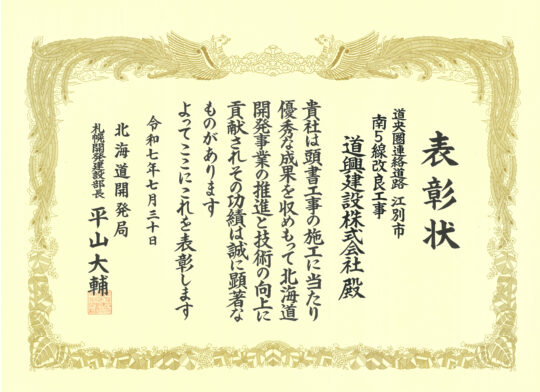 表彰状
道央圏連絡道路 江別市
南5線改良工事
道興建設株式会社 殿
貴社は頭書工事の施工に当たり
優秀な成果を収めもって北海道
開発事業の推進と技術の向上に
貢献されその功績は誠に顕著な
ものがあります
よってここにこれを表彰します
令和七年七月三十日
北海道開発局
札幌開発建設部長 平山大輔